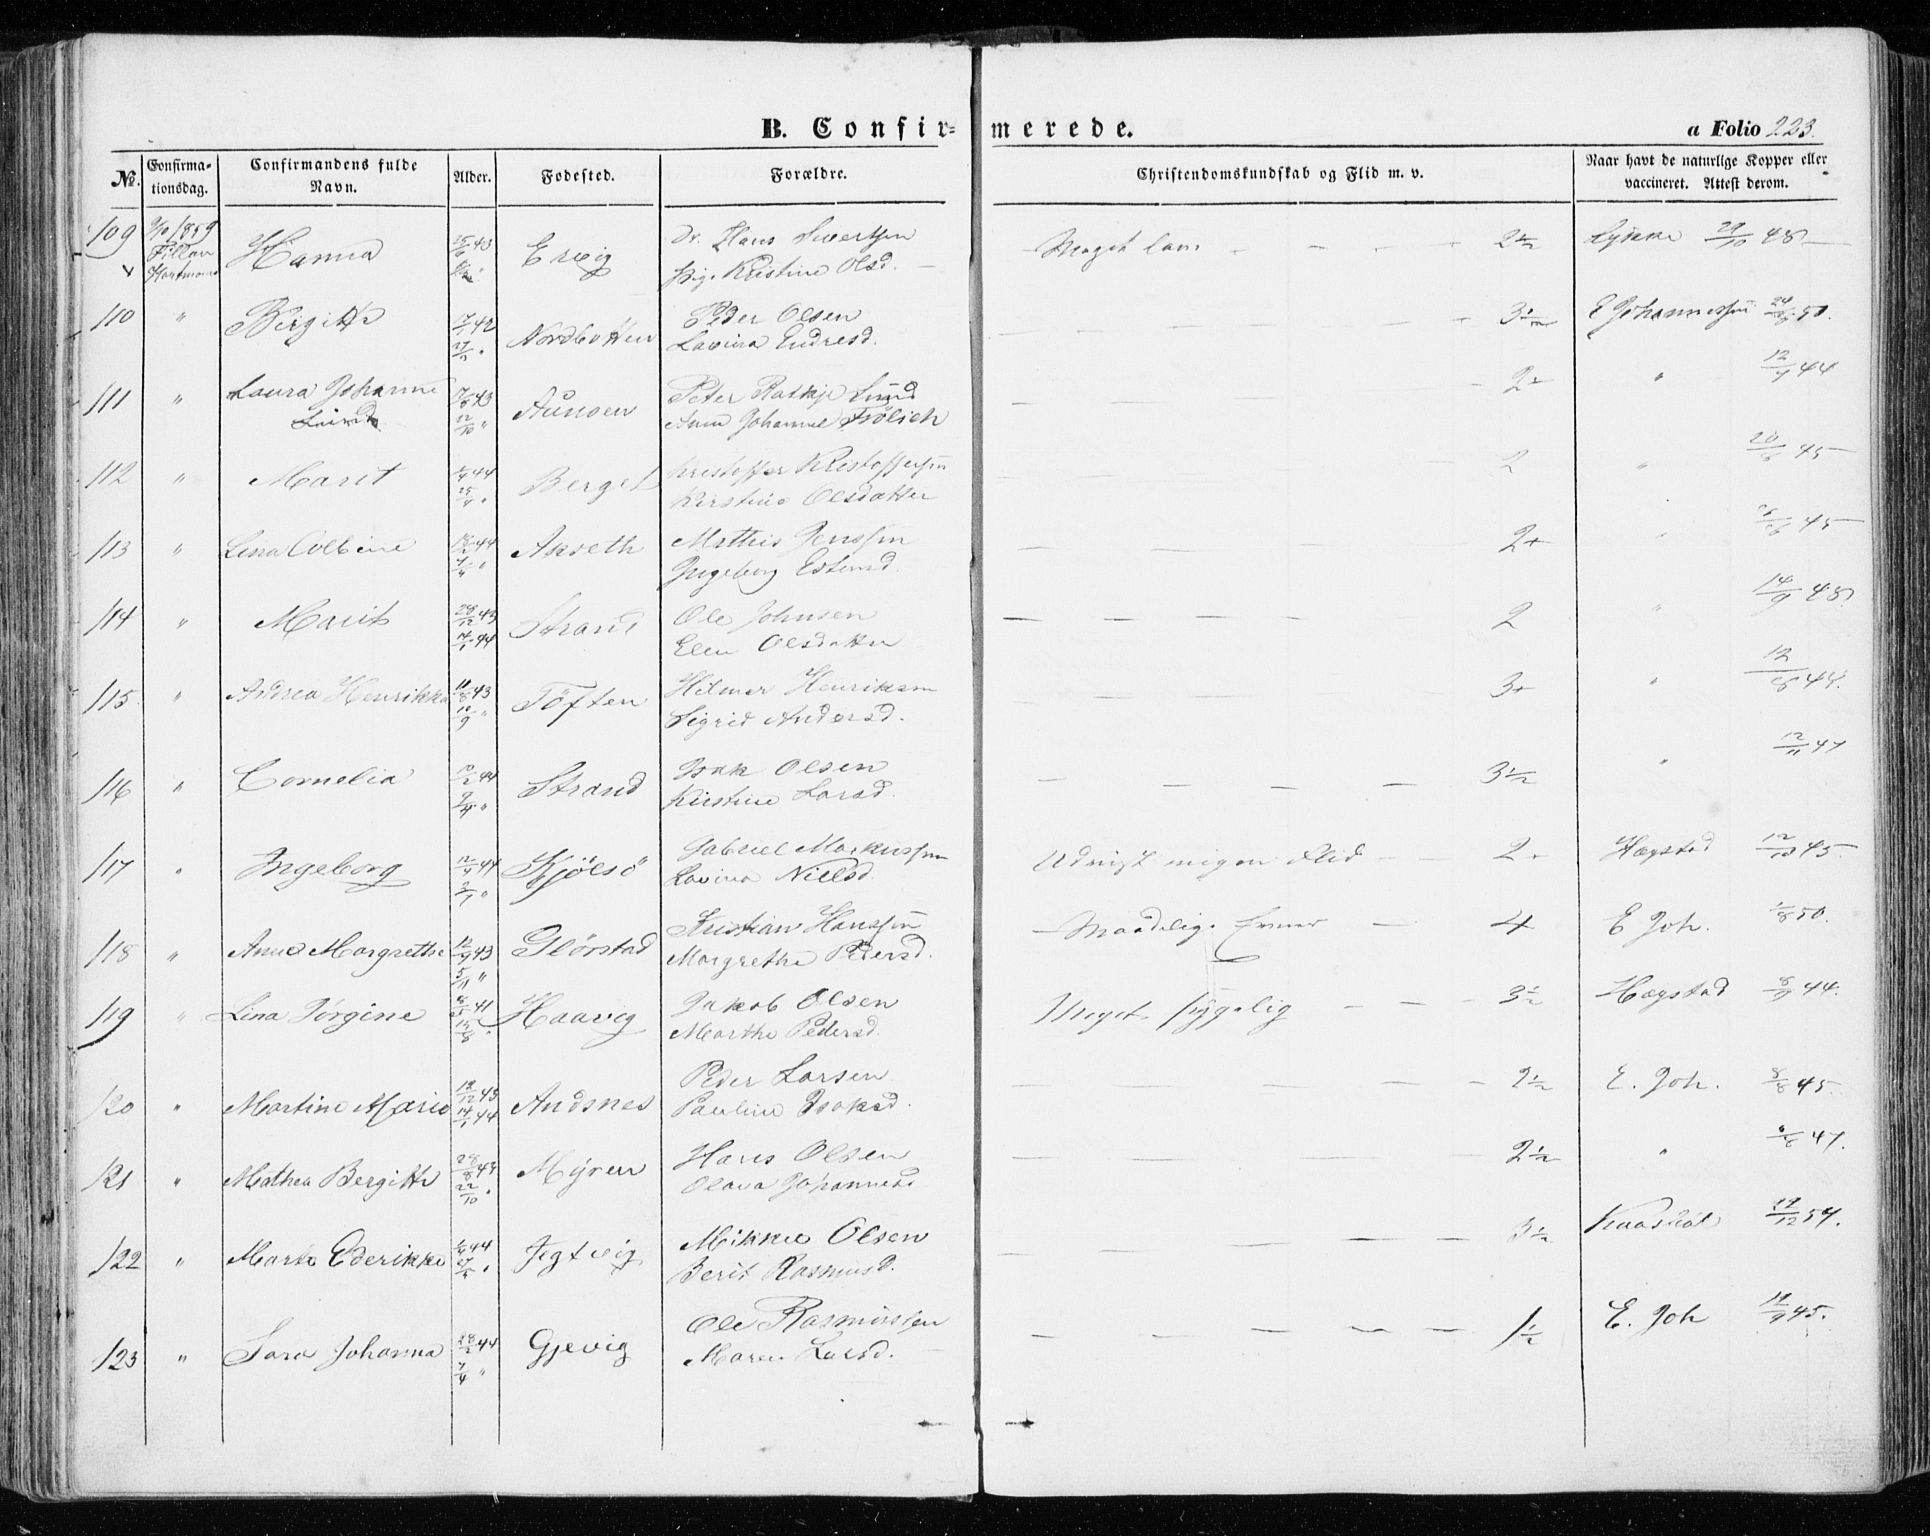 B. Confir=merede.
a Folio 223.
No. Confirmationsdag. Confirmandens fulde Navn. Alder. Fødested. Forældre. Christendomskundskab og Flid m. v. Naar havt de naturlige Kopper eller vaccineret. Attest derom.
109 9/10 1859 Fillan Hanna Ervig Hans Sivertsen 2½ Lykke 29/10 48
Pig. Kristine Olsd.
110 " Birgitte 17/1 42 Nordbotten Peder Olsen 3½ E Johannessen 50.
Lavina Endresd.
111 " Laura Johanne 43 Aunøen Peter Lund 2+ " 12/9 44
12/10 " Anne Johanne Frölich
112 " Marit 44 Berget Kristoffer Kristoffersen 2 " 20/6 45
Kirstine Olsdatter
113 " Lina Colbine 44 Akseth Mathis Jenssen 2+ " 45
7/4 " Ingeborg Estensd.
114 " Marit 28/12 43 Strand Ole Johnsen 2 " 14/9 48
14/1 44 Elen Olsdatter
115 " Andrea Henrikka 11/8 43 Töften Hilmer Henriksen 3+ " 12/8 44.
10/9 " Sigrid Andersd.
116 " Cornelia 44 Strand Isak Olsen 3½ " 12/11 47
Kirstine Larsd.
117 " Ingeborg 44 Kjölsö Gabriel Markussen 2+ Hegstad 12/10 45.
Lavina Nielsd.
118 " Anne Margrethe 12/9 43 Glörstad Kristian Hanssen Maadelige Evner 4 E Joh. 1/8 50.
5/11 " Margrethe Pedersd.
119 " Lina Jörgine 41 Haavig Jakob Olsen Meget sygelig 3½ Hegstad 8/9 44.
Marthe Pedersd.
120 " Martine Marie 12/12 43 Andsnes Peder Larsen 2½ E. Joh. 8/8 45.
14/1 44 Pauline Isaksd.
121 " Mathea Bergitte 28/8 43 Myren Hans Olsen 2½ " 47.
22/10 " Olava Johannesd
122 " Ederikke 44 Jegtvig Mikkel Olsen 3½ 54.
Berit Rasmusd.
123 " Sara Johanna 28/2 44 Gjevig Ole Rasmussen 1½ E. Joh 45.
7/4 " Maren Larsd.